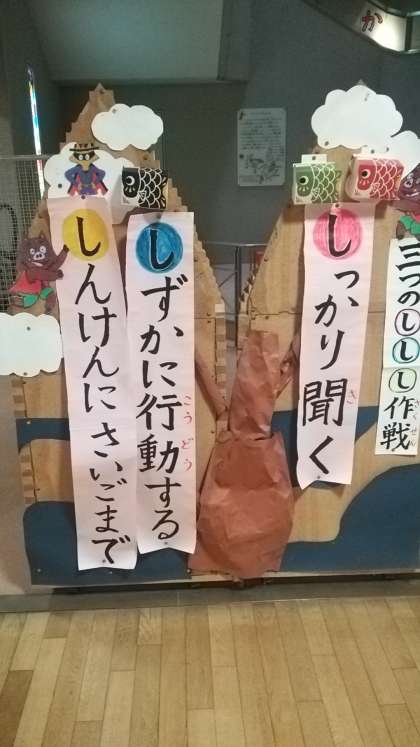 か
三つの
ししし
作戦
さくせん
しっかり聞く
き
しずかに行動する
こうどう
しんけんにさいごまで